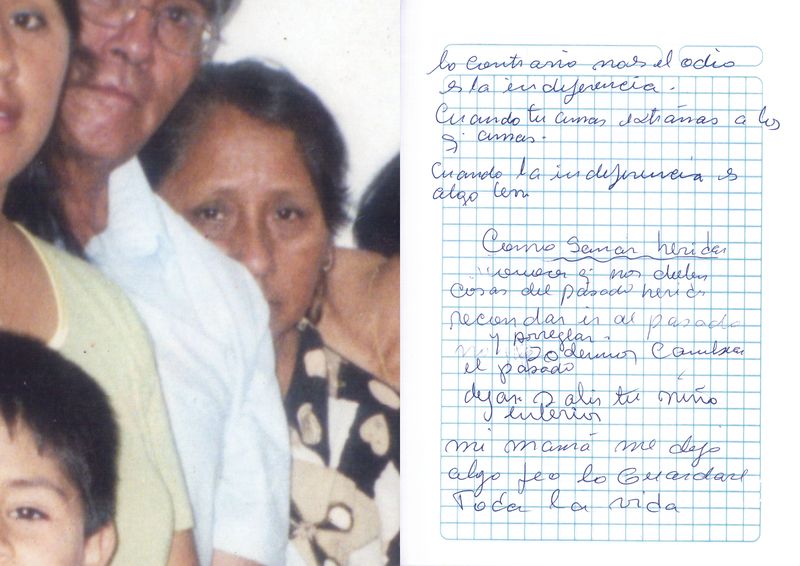 lo contrario no es el odio
es la indiferencia.
Cuando tu amas extrañas a los
q' amas.
Cuando la indiferencia es
algo
Como Sanar heridas
q' nos duelen
cosas del pasado
recordar ir al pasado
y arreglar.
podemos cambiar
el pasado
dejar salir tu niño
interior
mi mamá me dejo
algo feo lo Guardare
Toda la vida